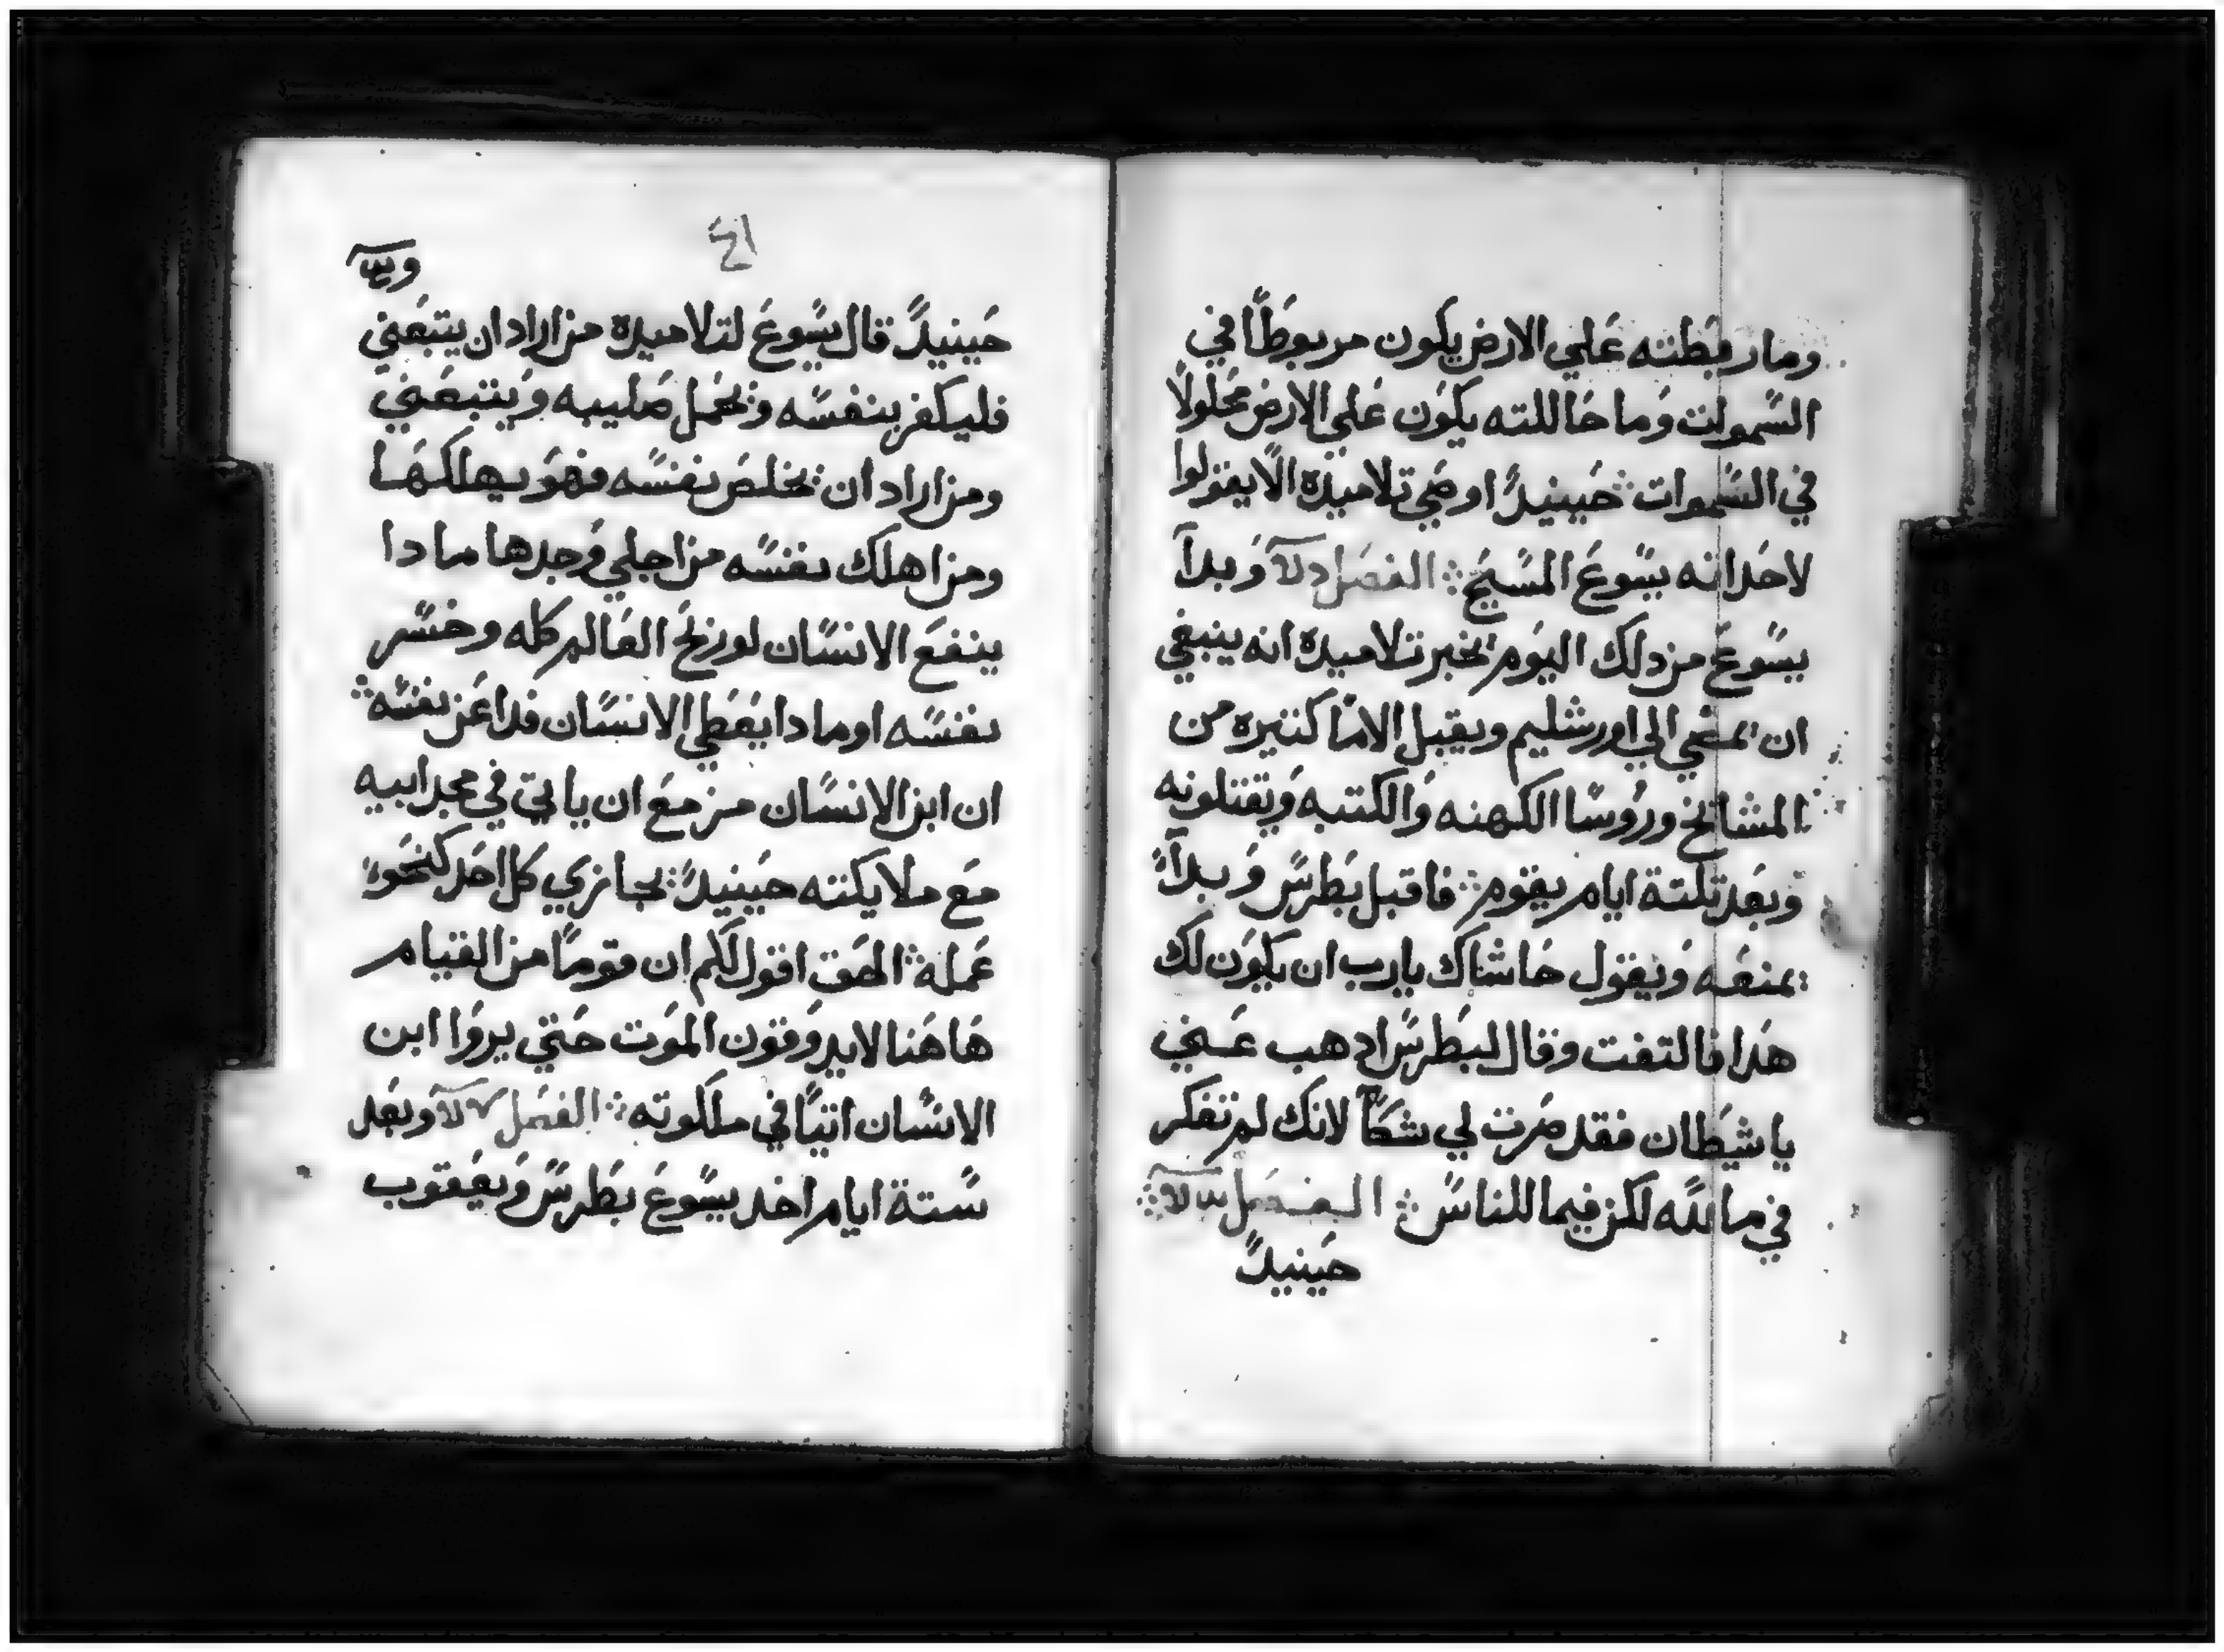 وما ربطته علي الارض يكون مربوطًا في
السموات وما حاللته يكون علي الارض محلولاً
في السموات حينيدً اوصي تلاميده الا يقولوا
لاحد انه يسوع المسيح الفصل وبدا
يسوع من دلك اليوم يخبر تلاميده انه ينبغي
ان يمضي الي اورشليم ويقبل الامًا كتيره من
المشايخ وروسا الكهنه والكتبه ويقتلونه
وبعد تلتة ايام يقوم فاقبل بطرس وبدا
يمنعه ويقول حاشاك يارب ان يكون لك
هدا فالتفت وقال لبطرس ادهب عني
ياشيطان فقد صرت لي شكاً لانك لم تفكر
في ما لله لكن فيما للناس الفصل
حينيدً
حينيدً قال يسوع لتلاميده من اراد ان يتبعني
فليكفر بنفسه ويحمل صليبه ويتبعني
ومن اراد ان يخلص نفسه فهو يهلكها
ومن اهلك نفسه من اجلي وجدها مادا
ينفع الانسان لو ربح العالم كله وخسر
نفسه او مادا يعطي الانسان فدا عن نفسه
ان ابن الانسان مزمع ان ياتي في مجد ابيه
مع ملايكته حينيدً يجازي كل احد كنحو
عمله الحق اقول لكم ان قومًا من القيام
هاهنا لايدوقون الموت حتي يروا ابن
الانسان اتيًا في ملكوته الفصل وبعد
ستة ايام اخد يسوع بطرس ويعقوب